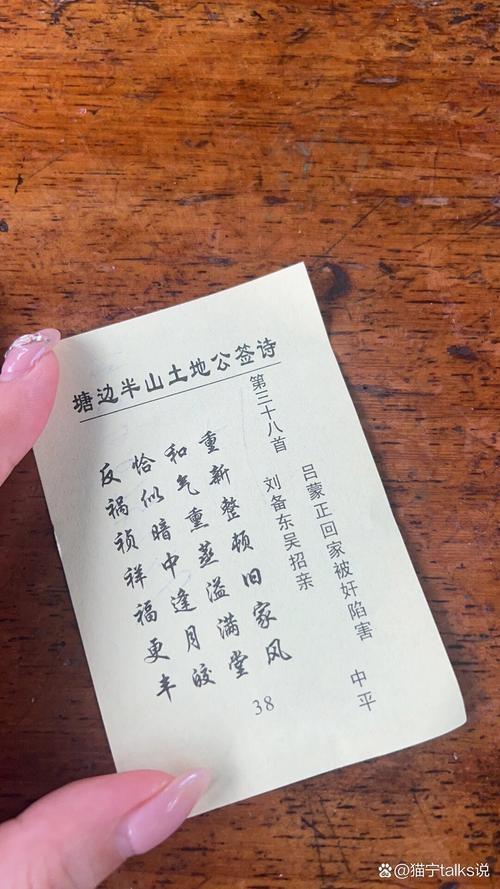 塘边半山土地公签诗
第三十八首 吕蒙正回家被奸陷害 中平
刘备东吴招亲
重新整顿旧家风
和气熏蒸溢满堂
恰似暗中逢月皎
反祸祯祥福更丰
38
@猫宁talks说